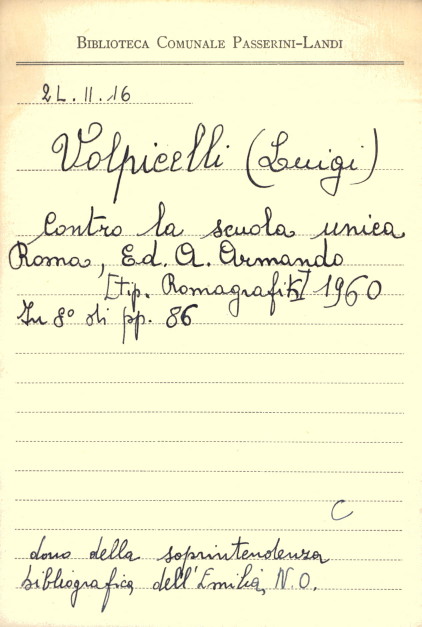 BIBLIOTECA COMUNALE PASSERINI-LANDI
2L.II.16
Volpicelli (Luigi)
Contro la scuola unica
Roma, Ed. A. Armando
[tip. Romagrafik] 1960
In 8° di pp. 86
C
dono della soprintendenza
bibliografica dell'Emilia, N.O.